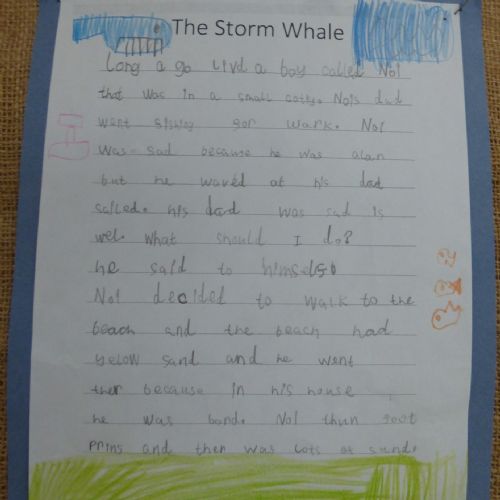 The Storm Whale
Long a go Livd a boy called Noi
that was in a small cottg. Nois dad
went fishing for wark. Noi
was sad because he was alan
but he waved at his dad
salled. his dad was sad is
wel. what should I do?
he said to himself
Noi decided to walk to the
beach and the beach had
yelow sand and he went
ther because in his house
he was bord. Noi thun foot
prins and ther was lots of sand.